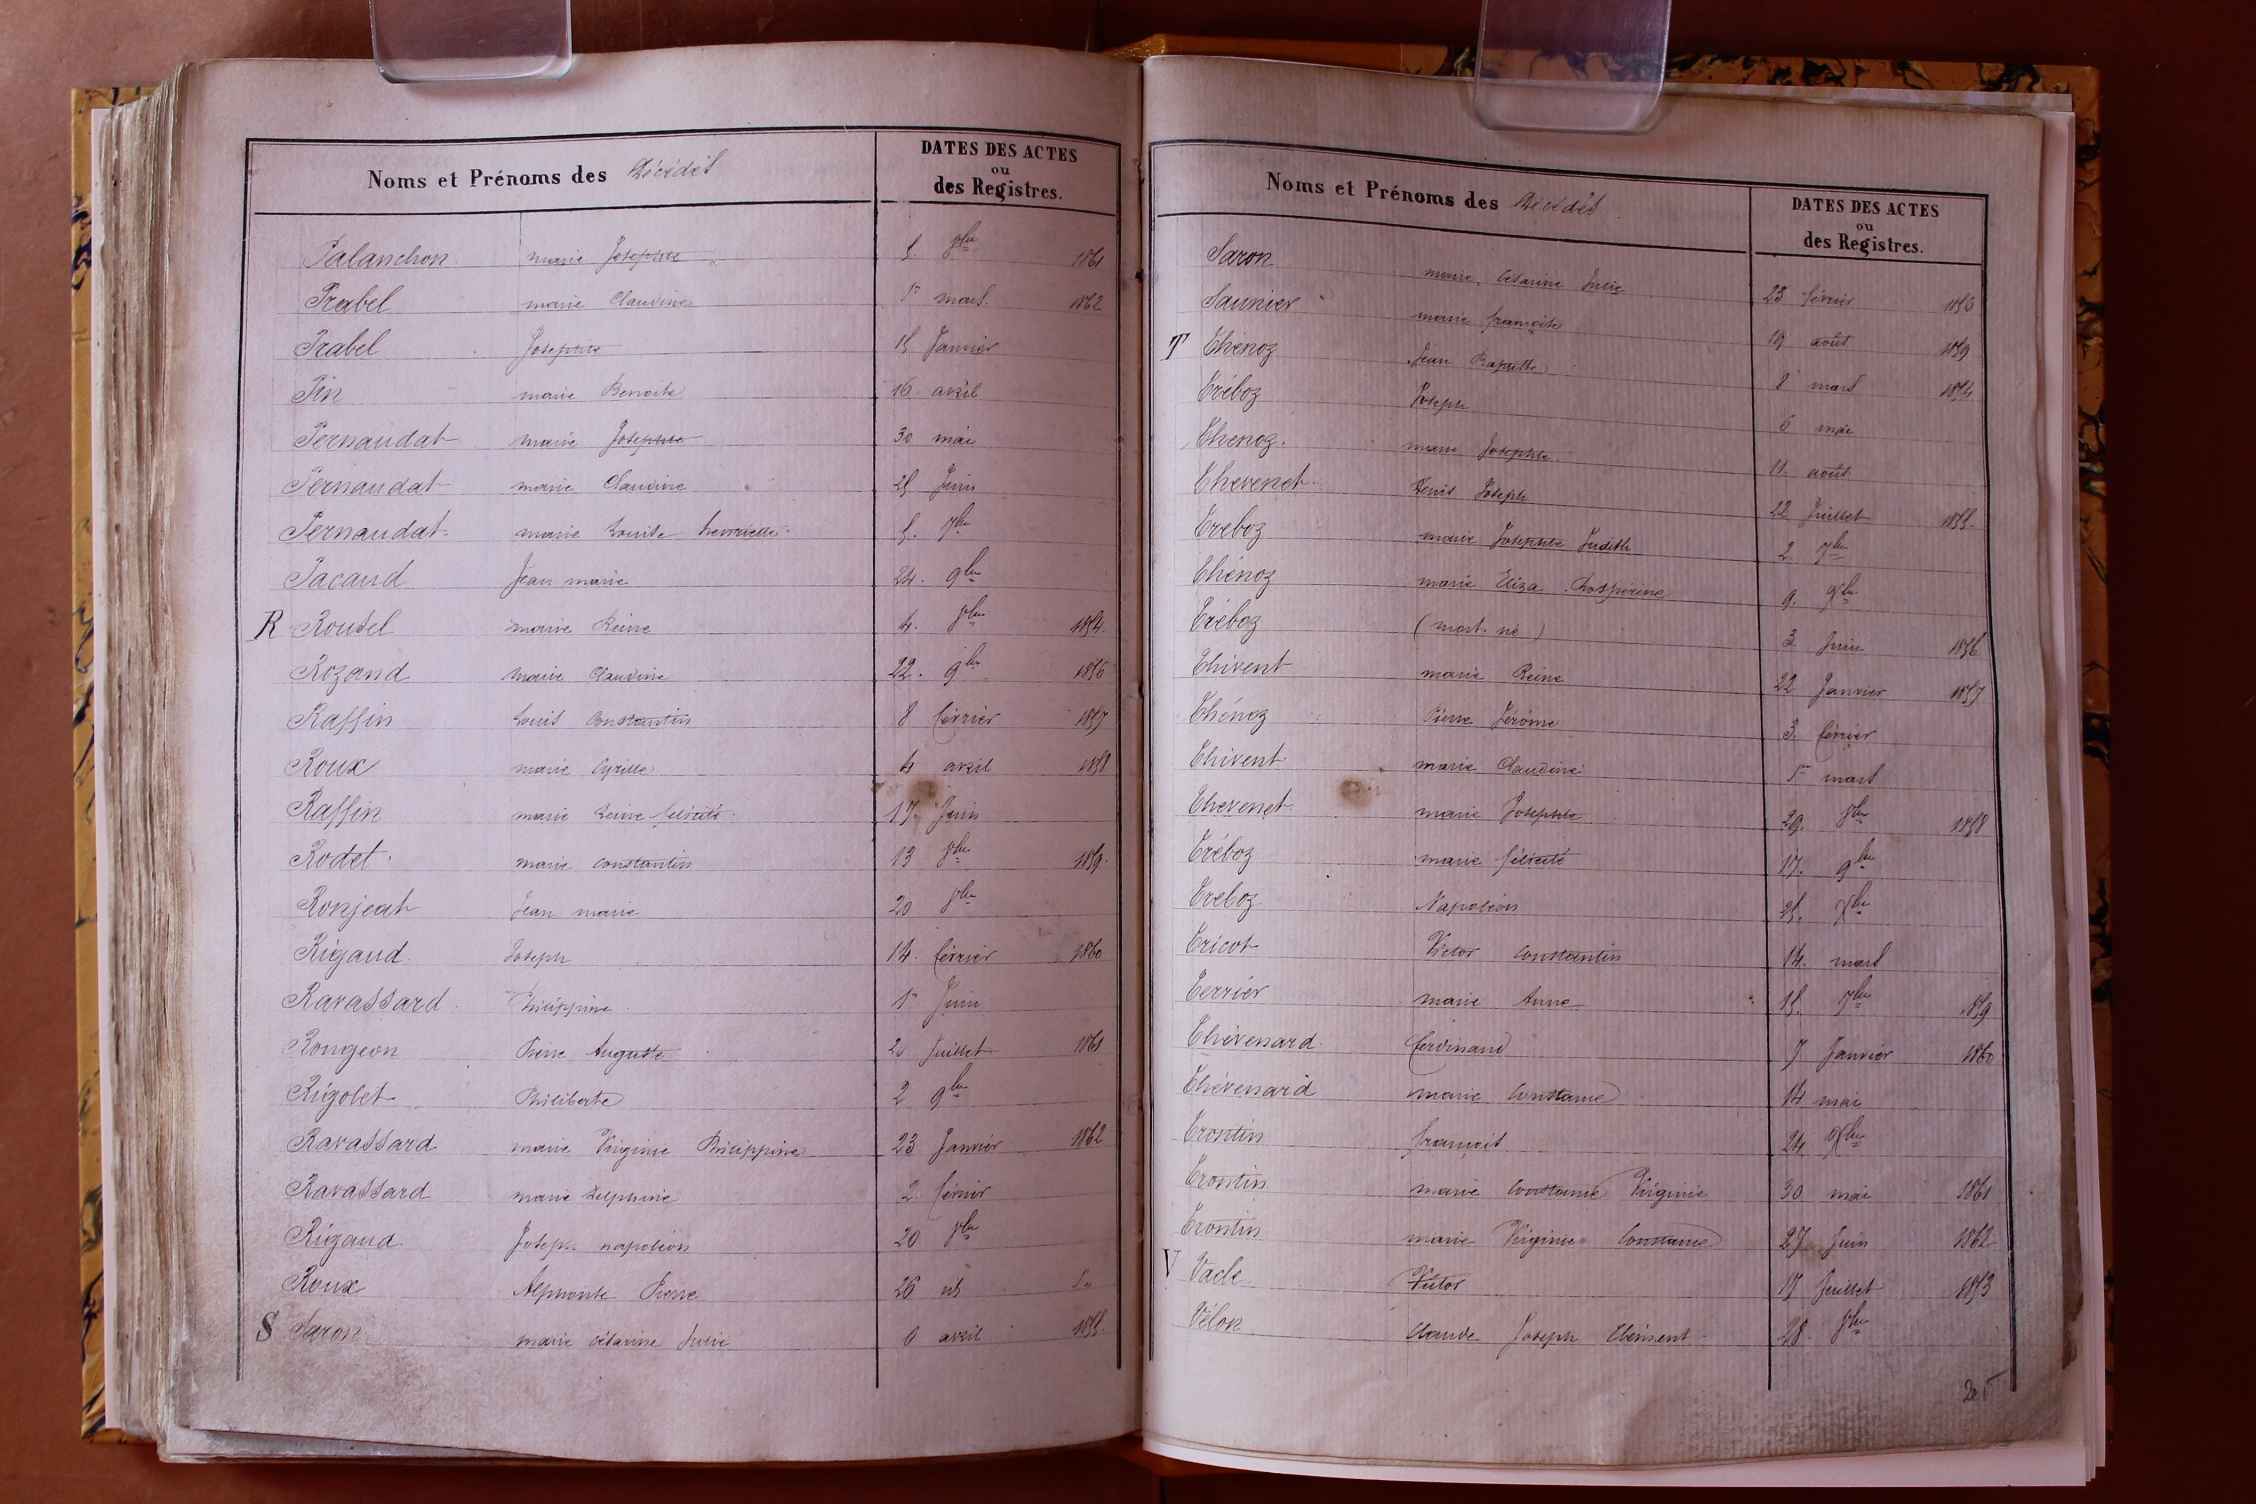 Noms et Prénoms des Décédés
DATES DES ACTES
ou
des Registres.
Palanchon marie Josephte 5. 8bre 1861
Prabel marie Claudine 1er mars 1862
Prabel Josephte 15 Janvier
Pin marie Benoite 16 avril
Pernaudat marie Josephte 30 mai
Pernaudat marie Claudine 25 Juin
Pernaudat marie Louise henriette 5. 7bre
Pacaud Jean marie 24. 9bre
R Rousel marie Reine 4. 8bre 1854.
Rozand marie Claudine 22. 9bre 1856
Raffin Louis Constantin 8 février 1857
Roux marie Cyrille 4 avril 1858
Raffin marie Reine félicité 17 Juin
Rodet marie constantin 13 8bre 1859.
Ronjeat Jean marie 20 8bre
Rigaud Joseph 14. février 1860
Ravassard Philippine 1er Juin
Rongeon Pierre Auguste 20 Juillet 1861
Rigolet Philiberte 2 9bre
Ravassard marie Virginie Philippine 23 Janvier 1862
Ravassard marie Delphine 2 février
Rigaud Joseph napoléon 20 8bre
Roux Alphonse Pierre 26 id
S Saron marie Césarine Julie 6 avril 1855.
Noms et Prénoms des Décédés
DATES DES ACTES
ou
des Registres.
Saron marie Césarine Julie 23 février 1856
Saunier marie françoise 19 août 1859
T Thénoz Jean Baptiste 8 mars 1854
Tréboz Joseph 6 mai
Thenoz. marie Josephte 11. août
Thevenet Denis Joseph 22 Juillet 1855.
Treboz marie Josephte Judith 2 7bre
Thénoz marie Eliza Prospérine 9. Xbre
Tréboz (mort-né) 3 Juin 1856
Thivent marie Reine 22 Janvier 1857
Thénoz Pierre Jérôme 3. février
Thivent marie Claudine 1er mars
Thevenet marie Josephte 29. 8bre 1858
Tréboz marie félicité 17. 9bre
Treboz Napoléon 25. Xbre
Tricot Victor Constantin 14. mars
Terrier marie Anne 15. 7bre 1859
Thévenard ferdinand 7 Janvier 1860
Thévenard marie Constance 14 mai
Trontin françois 24 Xbre
Trontin marie Constance Virginie 30 mai 1861
Trontin marie Virginie Constance 27 Juin 1862
V Vacle Victor 17 Juillet 1853
Vélon Claude Joseph Clément 28. 8bre
205